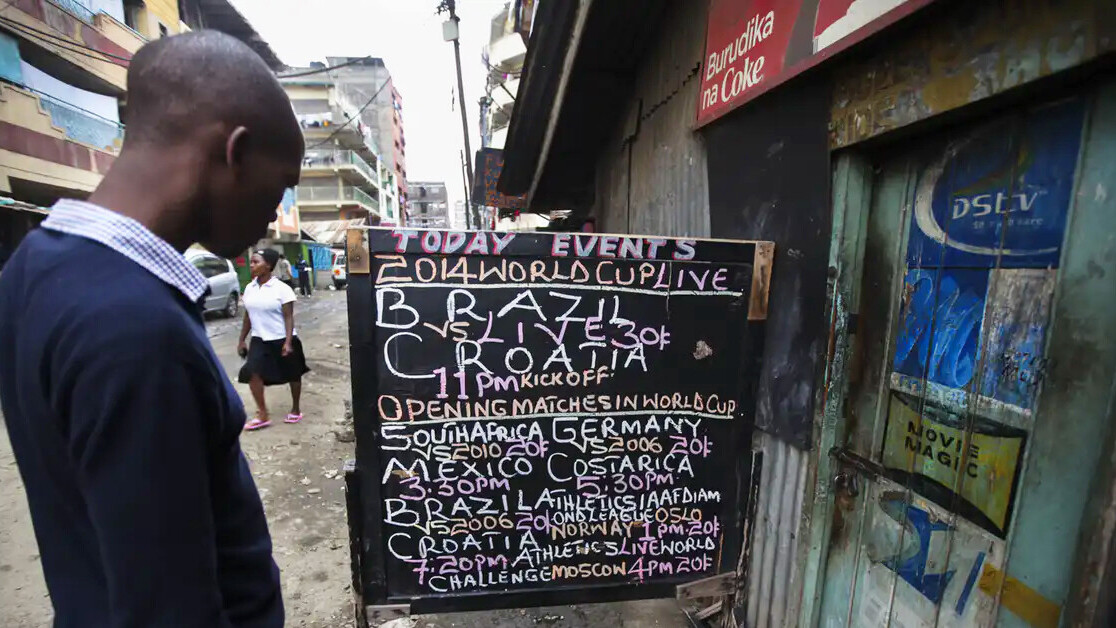 TODAY EVENTS
2014 WORLD CUP LIVE
BRAZIL
VS LIVE 30/-
CROATIA
11PM KICK OFF
OPENING MATCHES IN WORLD CUP
SOUTH AFRICA
VS 2010 20/-
MEXICO
3.30PM
BRAZIL
VS 2006 20/-
CROATIA
7.20PM
GERMANY
VS 2006 20/-
COSTARICA
5.30PM
ATHLETICS IAAF DIAM
OND LEAGUE OSLO
NORWAY 1PM 20/-
ATHLETICS LIVE WORLD
CHALLENGE MOSCOW 4PM 20/-
Burudika
na Coke
DStv
MOVIE
MAGIC